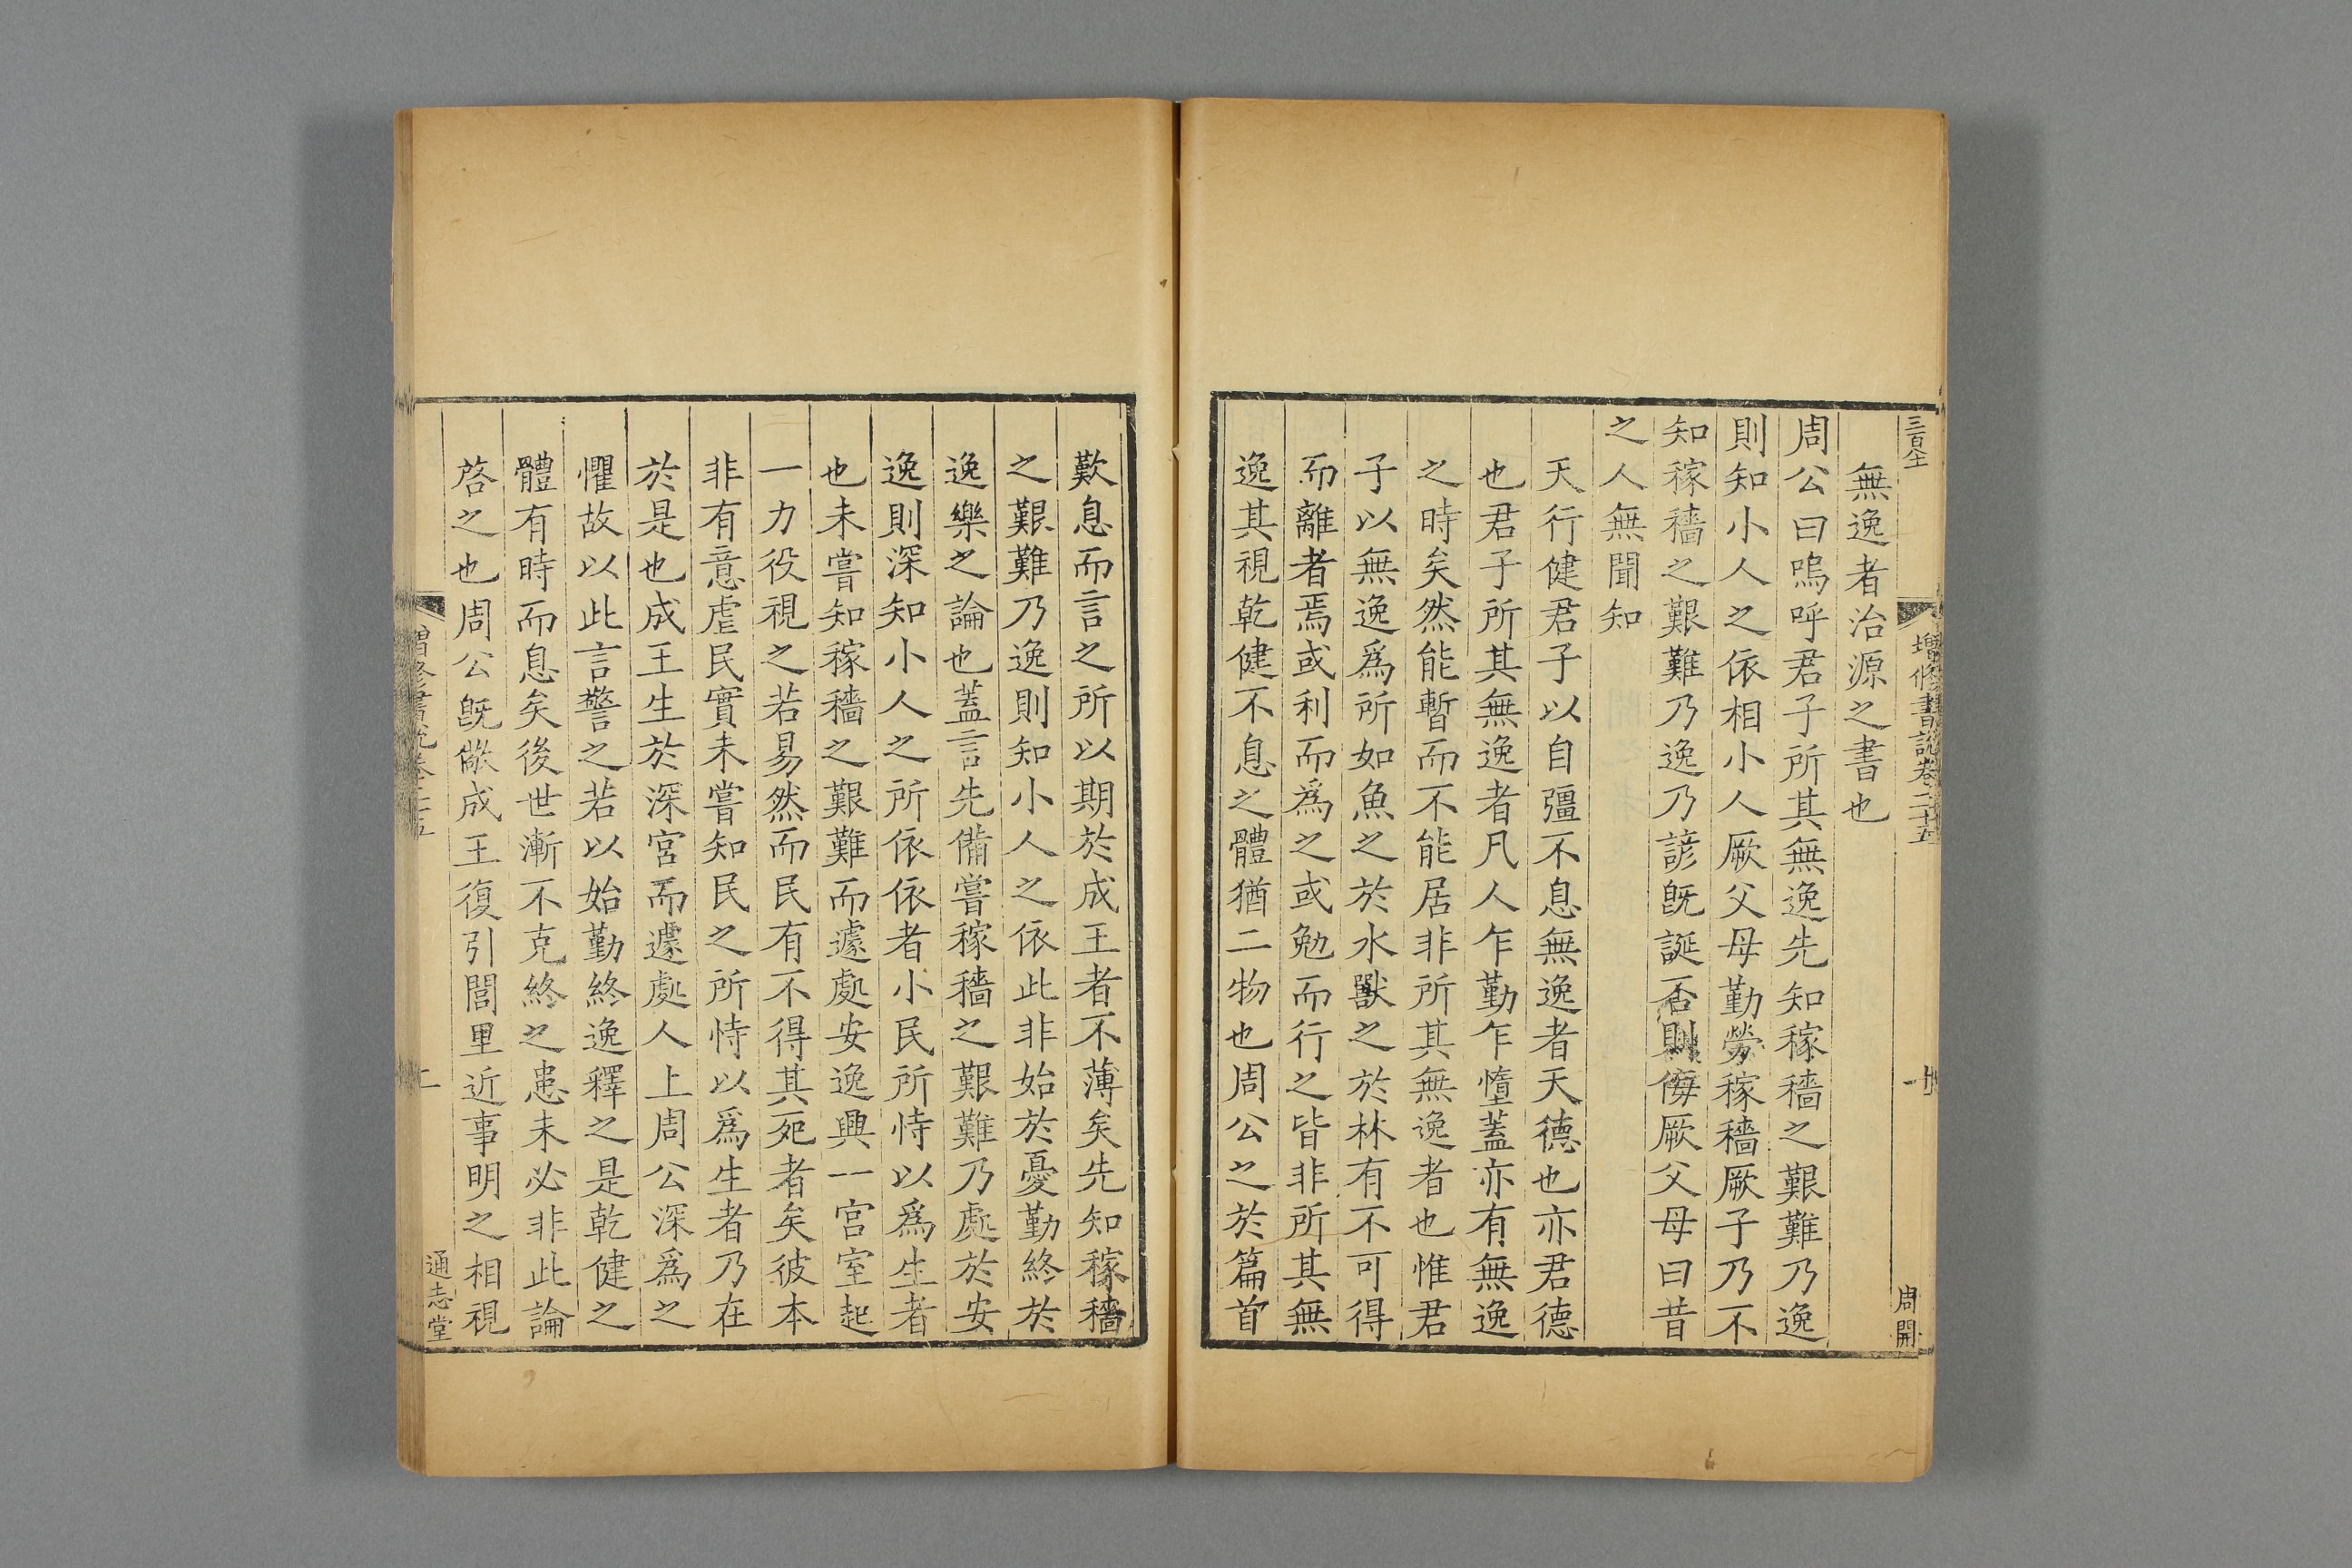 增修書說卷二十五
周開
無逸者治源之書也
周公曰嗚呼君子所其無逸先知稼穡之艱難乃逸
則知小人之依相小人厥父母勤勞稼穡厥子乃不
知稼穡之艱難乃逸乃諺旣誕否則侮厥父母曰昔
之人無聞知
天行健君子以自彊不息無逸者天德也亦君德
也君子所其無逸者凡人乍勤乍惰蓋亦有無逸
之時矣然能暫而不能居非所其無逸者也惟君
子以無逸爲所如魚之於水獸之於林有不可得
而離者焉或利而爲之或勉而行之皆非所其無
逸其視乾健不息之體猶二物也周公之於篇首
歎息而言之所以期於成王者不薄矣先知稼穡
之艱難乃逸則知小人之依此非始於憂勤終於
逸樂之論也蓋言先備嘗稼穡之艱難乃處於安
逸則深知小人之所依依者小民所恃以爲生者
也未嘗知稼穡之艱難而遽處安逸興一宮室起
一力役視之若易然而民有不得其死者矣彼本
非有意虐民實未嘗知民之所恃以爲生者乃在
於是也成王生於深宮而遽處人上周公深爲之
懼故以此言警之若以始勤終逸釋之是乾健之
體有時而息矣後世漸不克終之患未必非此論
啓之也周公旣儆成王復引閭里近事明之相視
二
通志堂